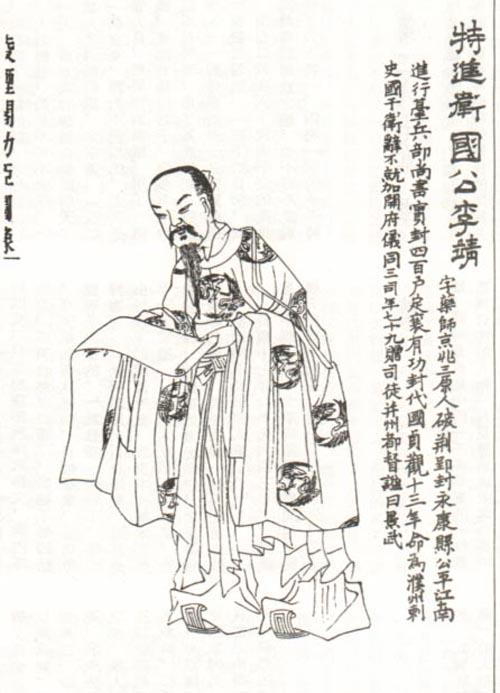 特進衛國公李靖
字藥師京兆三原人破荆郢封永康縣公平江南
進行臺兵部尚書實封四百户定襄有功封代國貞觀十三年命為濮州刺
史國于衛辭不就加開府儀同三司年七十九贈司徒并州都督謚曰景武
凌煙閣功臣圖像